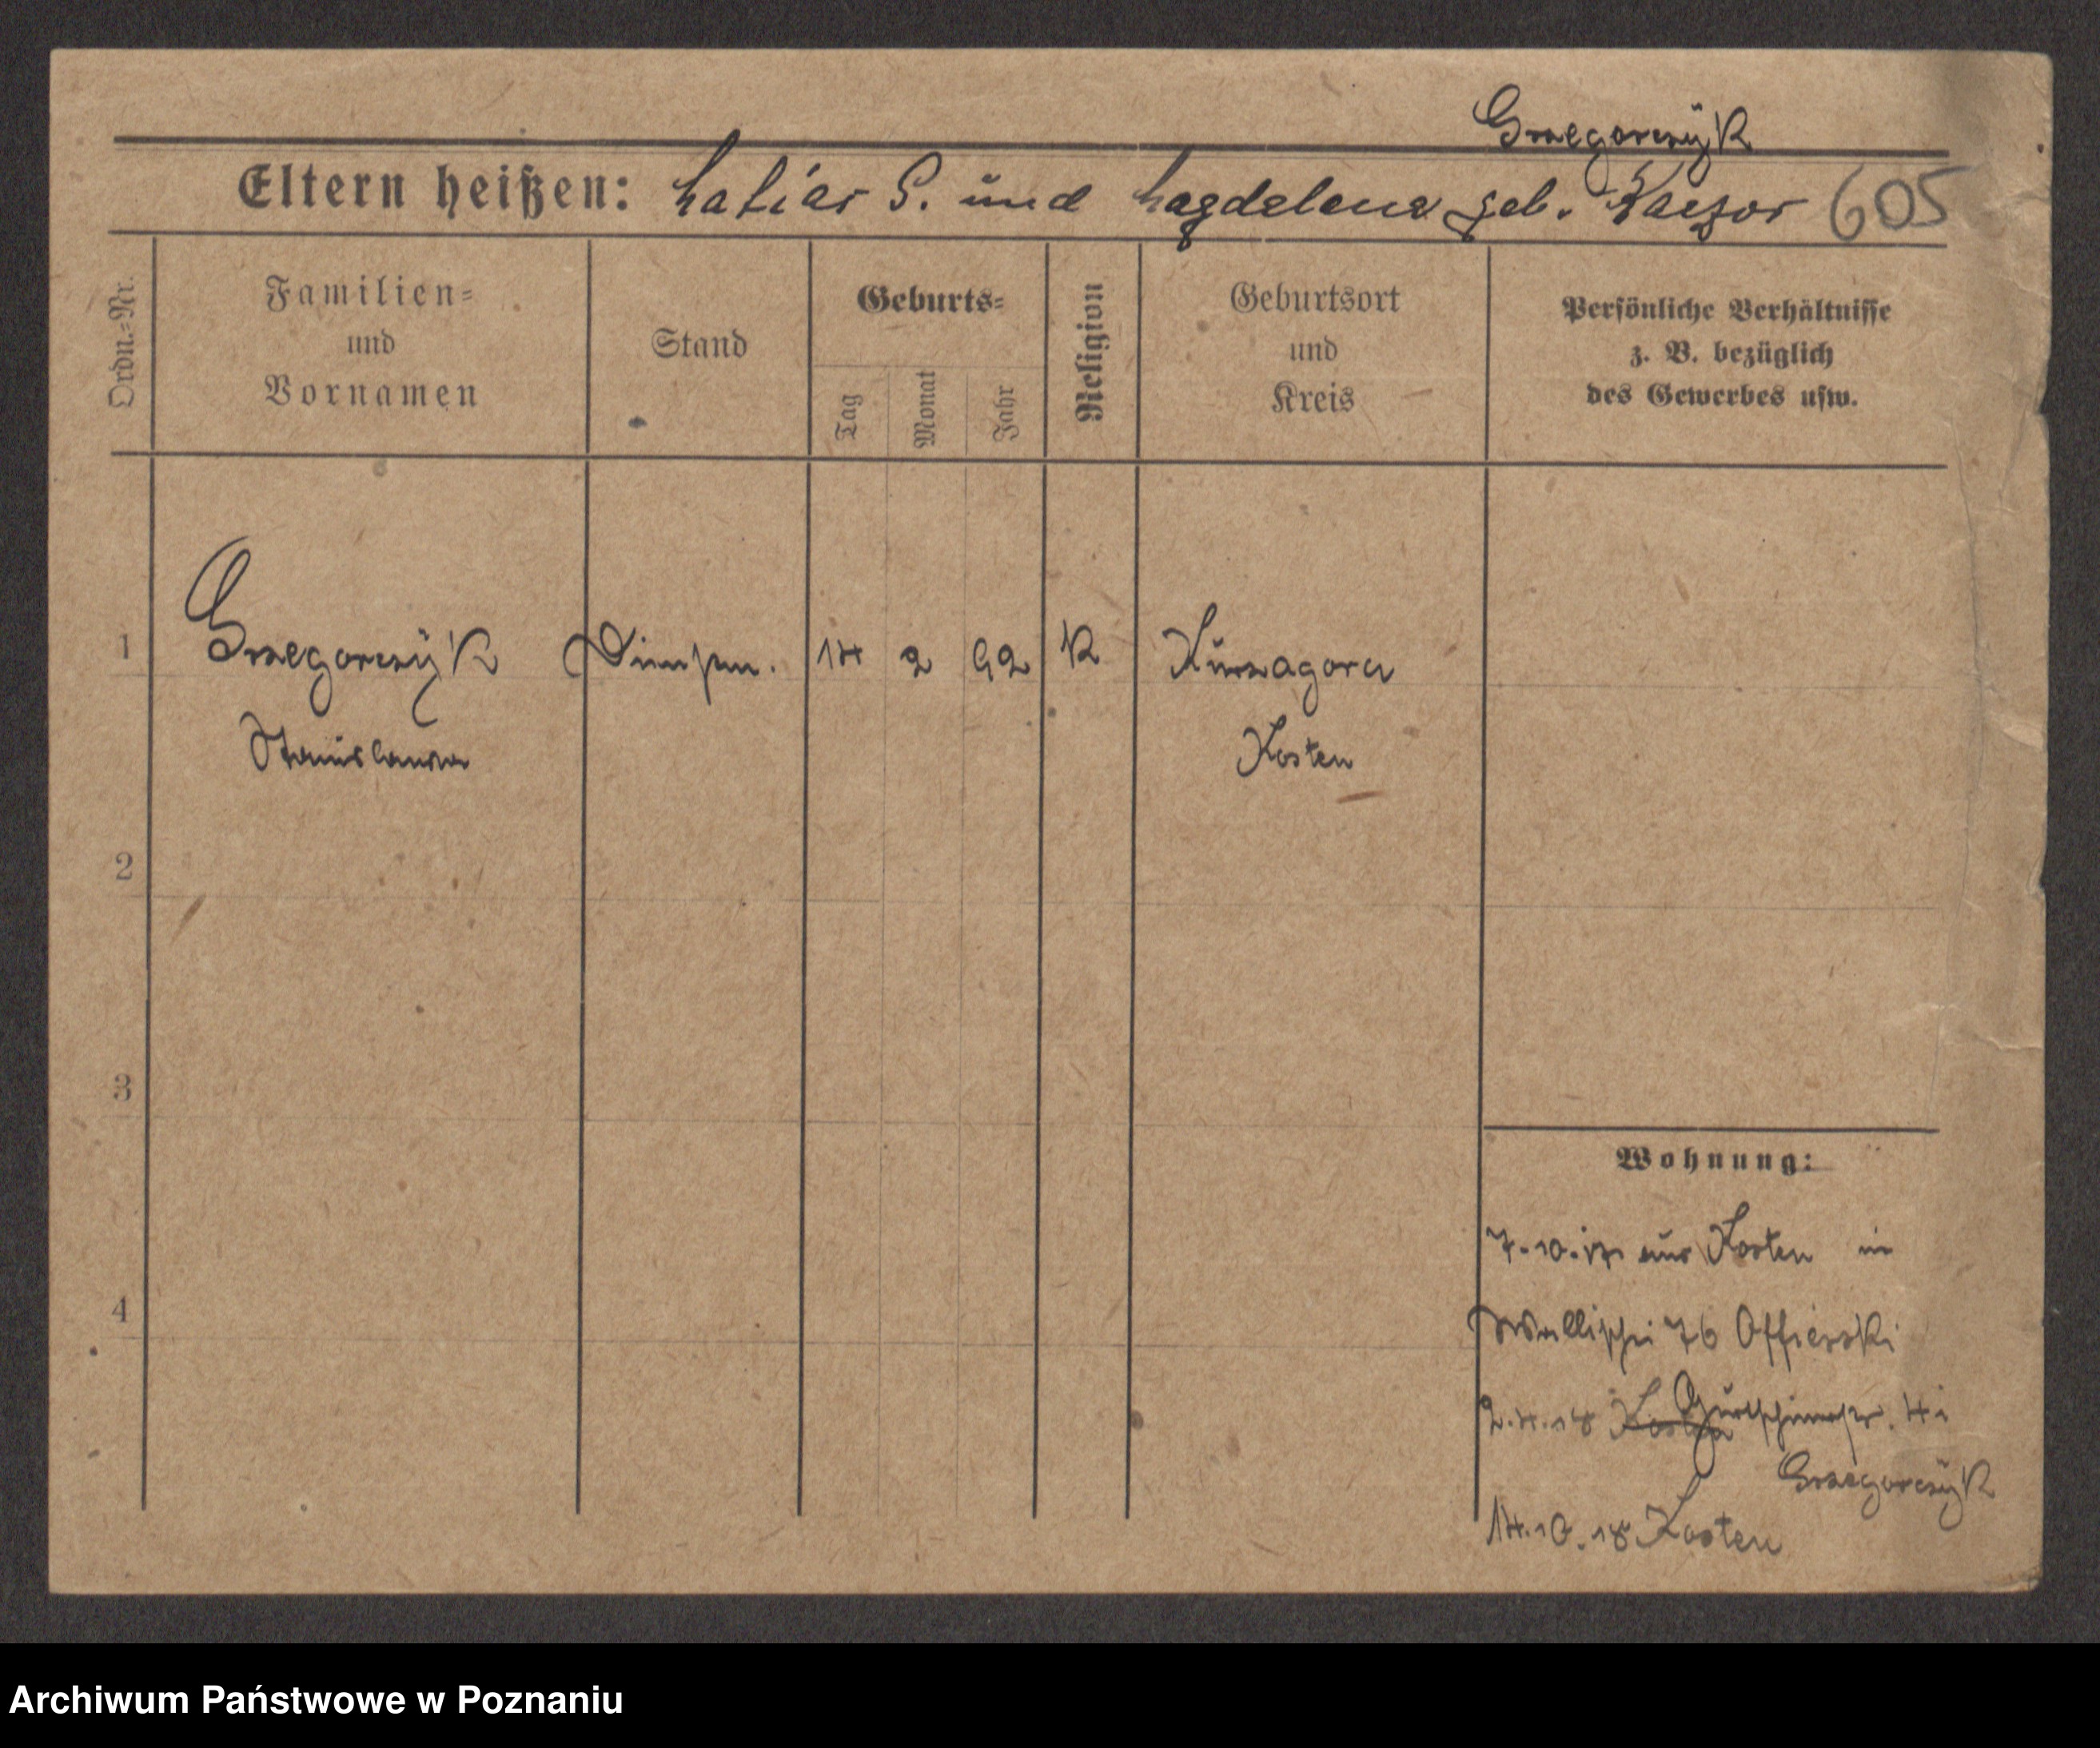 Grzegorczÿk
Eltern heißen: Matias G. und Magdalena geb. Kaczor 605
Ordn.=Nr.
Familien=
und
Vornamen
Stand
Geburts=
Tag
Monat
Jahr
Religion
Geburtsort
und
Kreis
Persönliche Verhältnisse
z. B. bezüglich
des Gewerbes usw.
1 Grzegorczÿk 14 2 92 K Kurzagora
Stanislawa Kosten
2
3
4
Wohnung:
7.10.17 aus Kosten in
Wallischei 76 Offierski
2.4.18 Kosten Gurtschinerstr. 4 i
Grzegorczÿk
14.10.18 Kosten
Archiwum Państwowe w Poznaniu